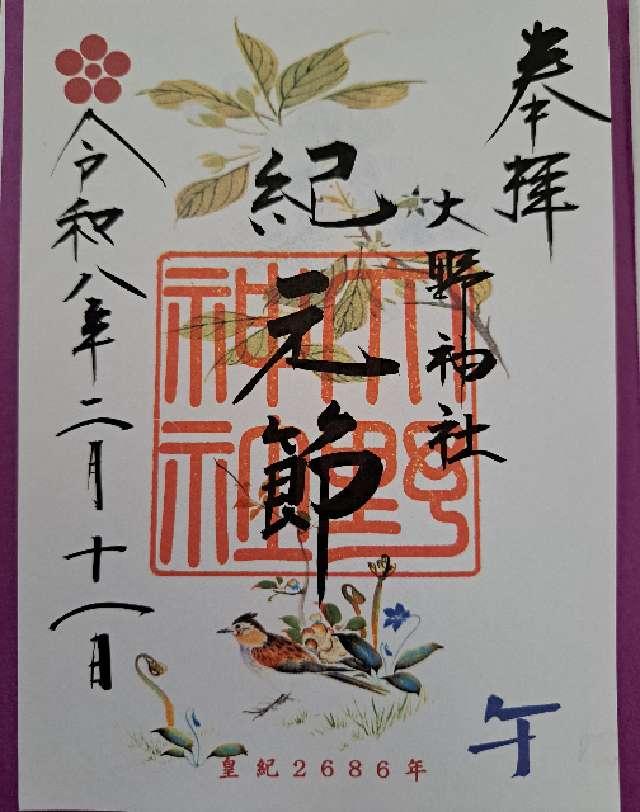 奉拝
大野神社
紀元節
大野神社
令和八年二月十一日
午
皇紀2686年